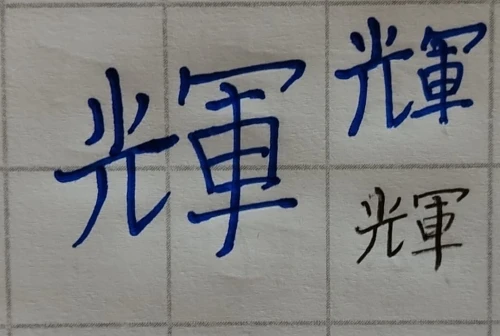 輝
輝
輝